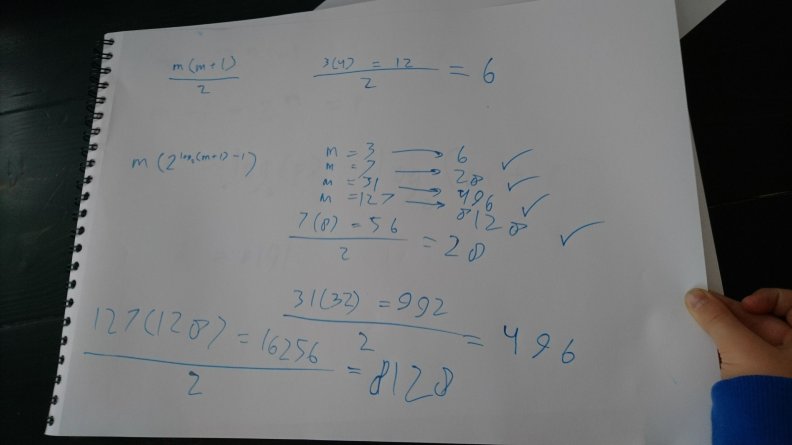 m(m+1)/2
3(4) = 12/2 = 6
m(2^log₂(m+1)-1)
m = 3 → 6 ✓
m = 7 → 28 ✓
m = 31 → 496 ✓
m = 127 → 8128 ✓
7(8) = 56/2 = 28
31(32) = 992/2 = 496
127(128) = 16256/2 = 8128